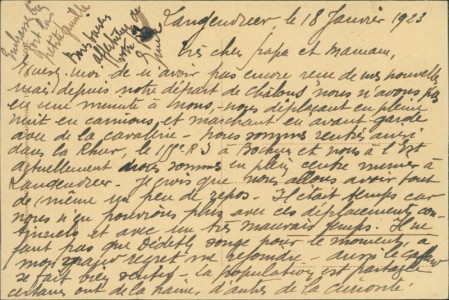 Langendreer, le 18 Janvier 1923
Très cher papa et Maman,
Excusez-moi de n'avoir pas encore reçu de mes nouvelles
mais depuis notre départ de chalons nous n'avons pas
eu une minute à nous, nous déplaçant en pleine
nuit en camions, et marchant en avant garde
avec de la cavalerie - nous sommes rentrés ainsi
dans la Rhur, le à Bochum et nous à l'Est
actuellement nous sommes en plein centre minier à
Langendreer - Je crois que nous allons avoir tout
de même un peu de repos - Il était temps car
nous n'en pouvions plus avec ces déplacements con-
tinuels et avec un très mauvais temps. Il ne
faut pas que Dédète songe pour le moment, à
mon grand regret me rejoindre - aussi le cafard
se fait très sentir - la population est partagée
certains ont de la haine, d'autres de la curiosité
Embrassez
pour
petite famille
Bons baisers
affectueux
votre